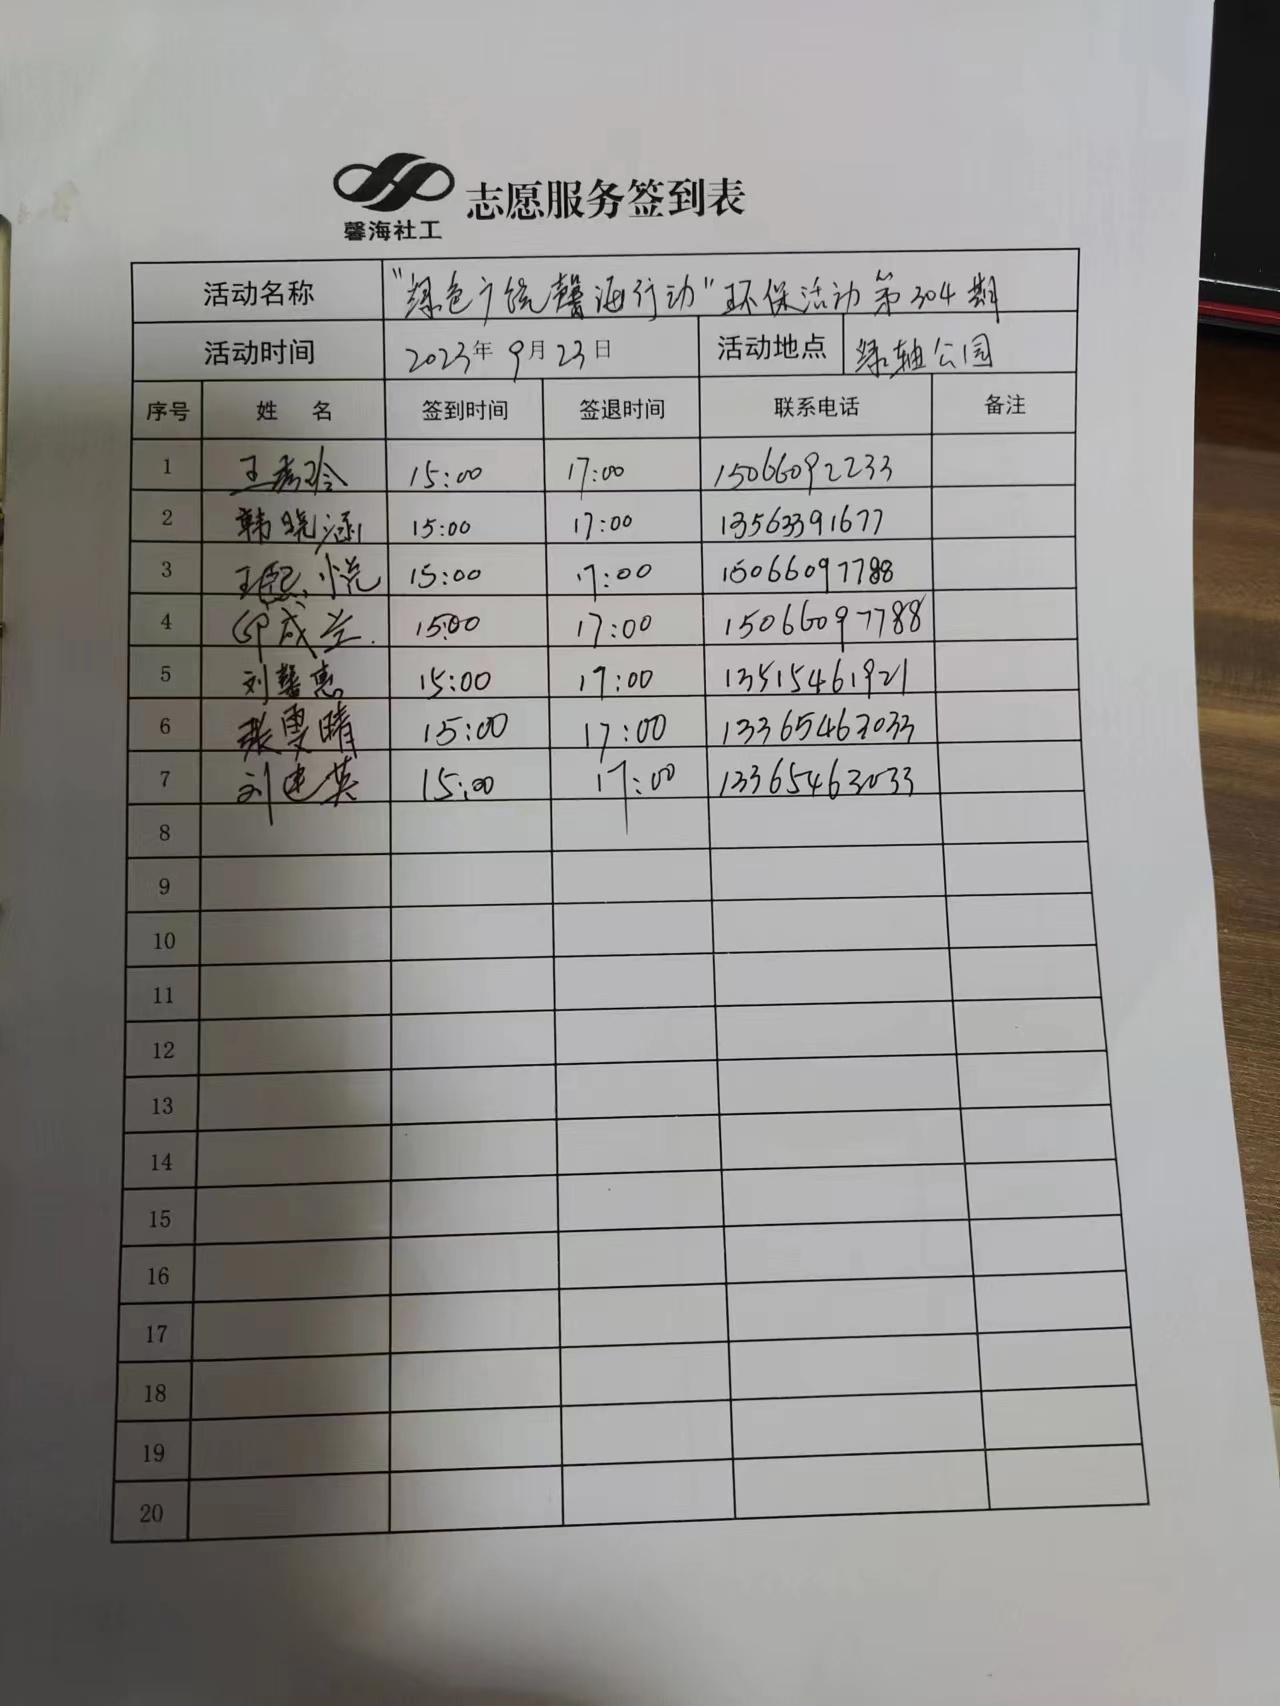 馨海社工
志愿服务签到表
活动名称 "绿色广饶馨海行动"环保活动第304期
活动时间 2023年9月23日 活动地点 绿轴公园
序号 姓 名 签到时间 签退时间 联系电话 备注
1 王秀玲 15:00 17:00 15066092233
2 韩晓涵 15:00 17:00 13563391677
3 王熙悦 15:00 17:00 15066097788
4 成兰 15:00 17:00 15066097788
5 刘馨惠 15:00 17:00 13515461921
6 张雯晴 15:00 17:00 13365463033
7 刘建英 15:00 17:00 13365463033
8
9
10
11
12
13
14
15
16
17
18
19
20